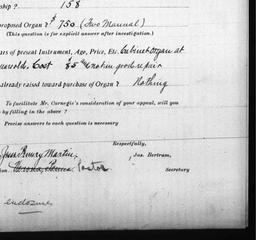 ship ? 158
oposed Organ? $750 (Two Manual)
(This question is for explicit answer after investigation.)
ars of present Instrument, Age, Price, Etc. Cabinet Organ at
Cost 85 in good repair
already raised toward purchase of Organ? Nothing
To facilitate Mr. Carnegie's consideration of your appeal, will you
by filling in the above ?
Precise answers to each question is necessary
Respectfully,
Henry Martin, Jas. Bertram,
tion. Pastor Secretary
enclosure